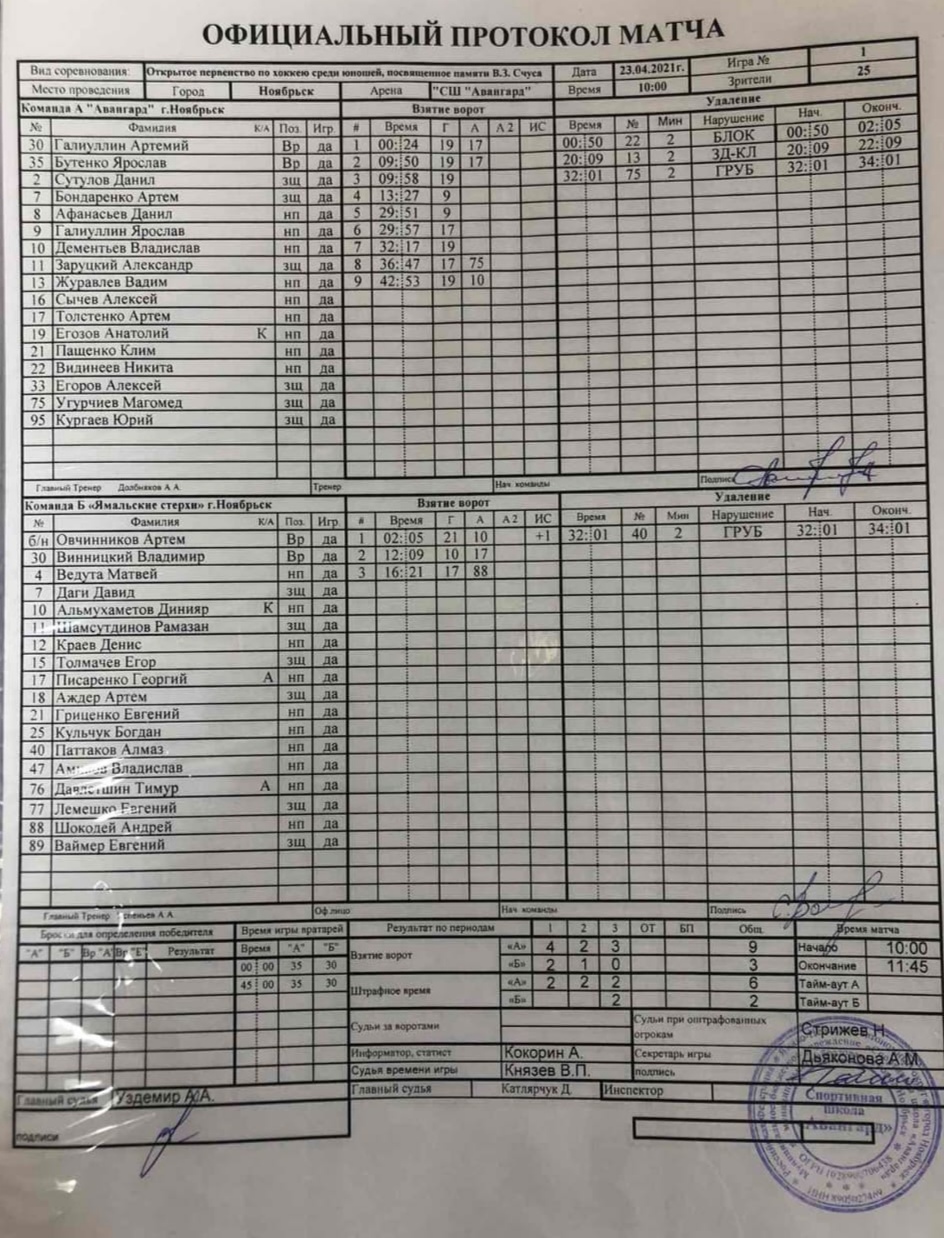 ОФИЦИАЛЬНЫЙ ПРОТОКОЛ МАТЧА
Вид соревнования: Открытое первенство по хоккею среди юношей, посвященное памяти В.З. Счуса Дата 23.04.2021г. Игра № 1
Место проведения Город Ноябрьск Арена "СШ "Авангард" Время 10:00 Зрители 25
Команда А "Авангард" г.Ноябрьск Взятие ворот Удаление
№ Фамилия К/А Поз. Игр. # Время Г А А 2 ИС Время № Мин Нарушение Нач. Оконч.
30 Галиуллин Артемий Вр да 1 00:24 19 17 00:50 22 2 БЛОК 00:50 02:05
35 Бутенко Ярослав Вр да 2 09:50 19 17 20:09 13 2 ЗД-КЛ 20:09 22:09
2 Сутулов Данил зщ да 3 09:58 19 32:01 75 2 ГРУБ 32:01 34:01
7 Бондаренко Артем зщ да 4 13:27 9
8 Афанасьев Данил нп да 5 29:51 9
9 Галиуллин Ярослав нп да 6 29:57 17
10 Дементьев Владислав нп да 7 32:17 19
11 Заруцкий Александр зщ да 8 36:47 17 75
13 Журавлев Вадим нп да 9 42:53 19 10
16 Сычев Алексей нп да
17 Толстенко Артем нп да
19 Егозов Анатолий К нп да
21 Пащенко Клим нп да
22 Видинеев Никита нп да
33 Егоров Алексей зщ да
75 Угурчиев Магомед зщ да
95 Кургаев Юрий зщ да
Главный Тренер Долбняков А.А. Тренер Нач. команды Подпись
Команда Б «Ямальские стерхи» г.Ноябрьск Взятие ворот Удаление
№ Фамилия К/А Поз. Игр. # Время Г А А 2 ИС Время № Мин Нарушение Нач. Оконч.
б/н Овчинников Артем Вр да 1 02:05 21 10 +1 32:01 40 2 ГРУБ 32:01 34:01
30 Винницкий Владимир Вр да 2 12:09 10 17
4 Ведута Матвей нп да 3 16:21 17 88
7 Даги Давид зщ да
10 Альмухаметов Динияр К нп да
11 Шамсутдинов Рамазан зщ да
12 Краев Денис нп да
15 Толмачев Егор зщ да
17 Писаренко Георгий А нп да
18 Аждер Артем зщ да
21 Гриценко Евгений нп да
25 Кульчук Богдан нп да
40 Паттаков Алмаз нп да
47 Владислав нп да
76 Давлетшин Тимур А нп да
77 Лемешко Евгений зщ да
88 Шокодей Андрей нп да
89 Ваймер Евгений зщ да
Главный Тренер А.А. Оф.лицо Нач. команды Подпись
Броски для определения победителя Время игры вратарей Результат по периодам 1 2 3 ОТ БП Общ. Время матча
"А" "Б" Вр "А" Вр "Б" Результат Время "А" "Б" Взятие ворот «А» 4 2 3 9 Начало 10:00
00 00 35 30 «Б» 2 1 0 3 Окончание 11:45
45 00 35 30 Штрафное время «А» 2 2 2 6 Тайм-аут А
«Б» 2 2 Тайм-аут Б
Судьи за воротами Судьи при оштрафованных игроках Стрижев Н.
Информатор, статист Кокорин А. Секретарь игры Дьяконова А.М.
Судья времени игры Князев В.П. подпись
Главный судья Уздемир А.А. Главный судья Катлярчук Д. Инспектор
подписи
Спортивная
школа
«Авангард»